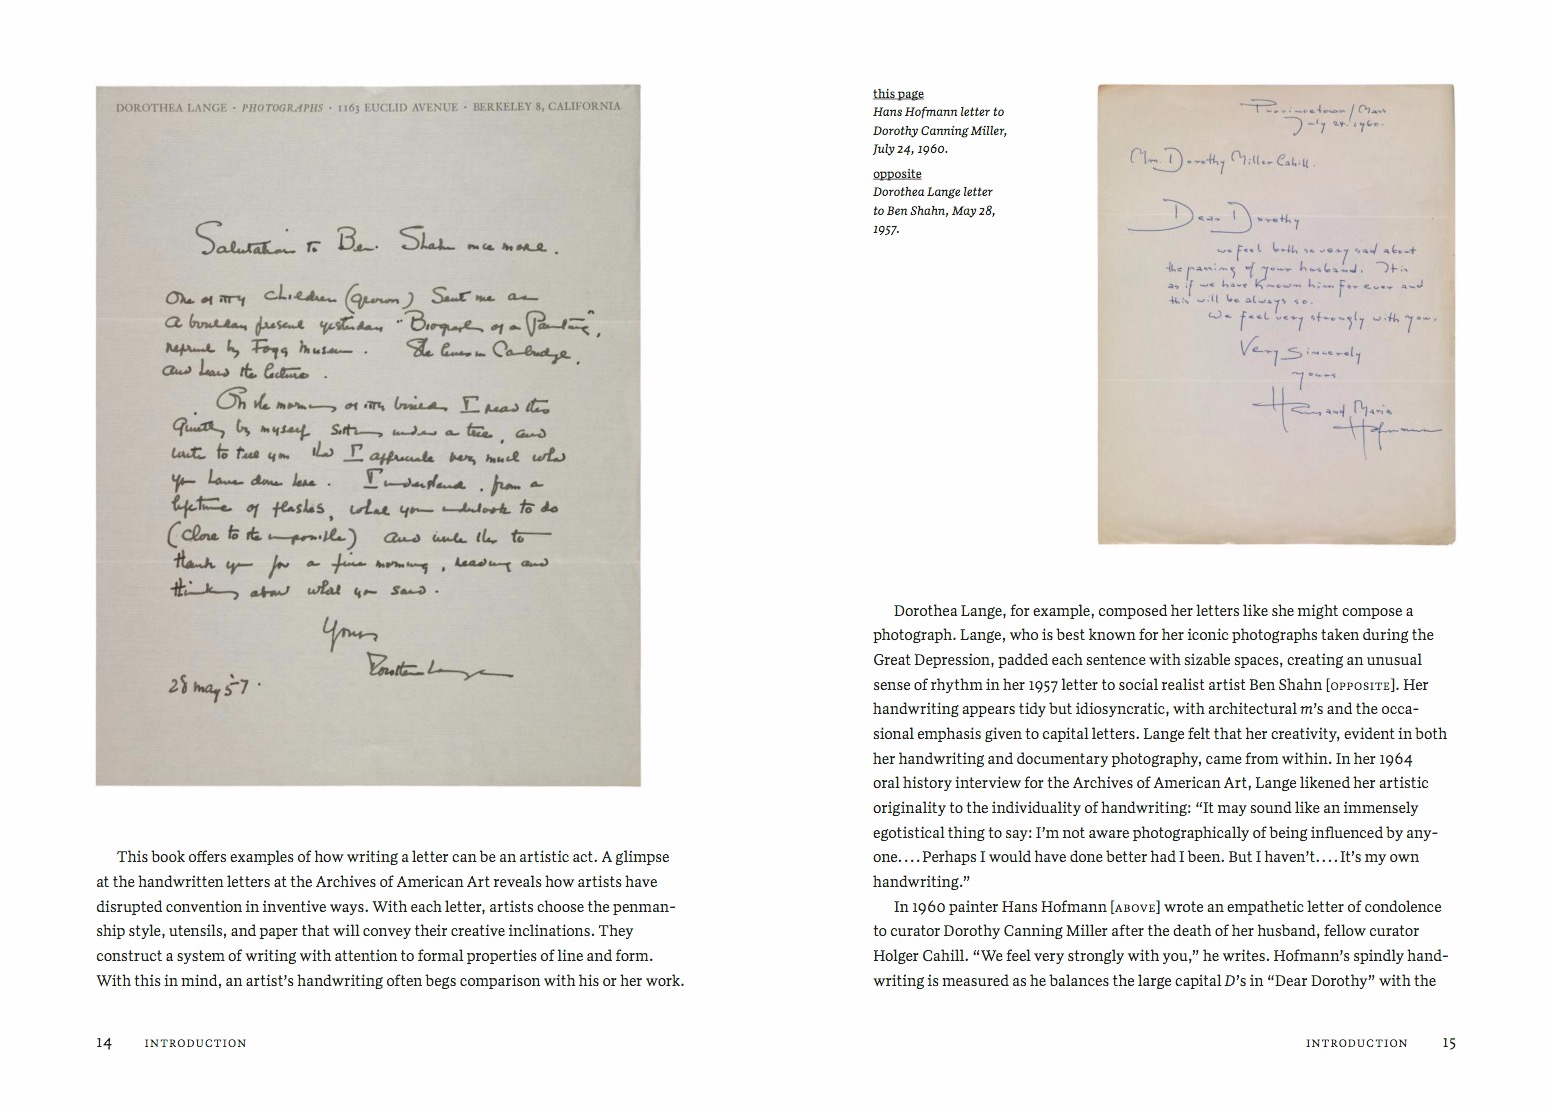 DOROTHEA LANGE · PHOTOGRAPHS · 1163 EUCLID AVENUE · BERKELEY 8, CALIFORNIA
Salutation to Ben Shahn once more.
One of my children (grown) sent me as
a birthday present yesterday "Biography of a Painting",
reprint by Fogg Museum. She lives in Cambridge,
and heard the lectures.
On the morning of my birthday I read this
quietly by myself sitting under a tree, and
write to tell you that I appreciate very much what
you have done here. I understand, from a
lifetime of flashes, what you undertook to do
(close to the impossible) and write this to
thank you for a fine morning, reading and
thinking about what you said.
Yours
Dorothea Lange
28 may 57.
This book offers examples of how writing a letter can be an artistic act. A glimpse
at the handwritten letters at the Archives of American Art reveals how artists have
disrupted convention in inventive ways. With each letter, artists choose the penman-
ship style, utensils, and paper that will convey their creative inclinations. They
construct a system of writing with attention to formal properties of line and form.
With this in mind, an artist's handwriting often begs comparison with his or her work.
14 INTRODUCTION
this page
Hans Hofmann letter to
Dorothy Canning Miller,
July 24, 1960.
opposite
Dorothea Lange letter
to Ben Shahn, May 28,
1957.
Provincetown/Mass
July 24. 1960.
Mrs. Dorothy Miller Cahill.
Dear Dorothy
we feel both so very sad about
the passing of your husband. It is
as if we have known him for ever and
this will be always so.
We feel very strongly with you.
Very Sincerely
yours
Hans and Maria
Hofmann
Dorothea Lange, for example, composed her letters like she might compose a
photograph. Lange, who is best known for her iconic photographs taken during the
Great Depression, padded each sentence with sizable spaces, creating an unusual
sense of rhythm in her 1957 letter to social realist artist Ben Shahn [OPPOSITE]. Her
handwriting appears tidy but idiosyncratic, with architectural m's and the occa-
sional emphasis given to capital letters. Lange felt that her creativity, evident in both
her handwriting and documentary photography, came from within. In her 1964
oral history interview for the Archives of American Art, Lange likened her artistic
originality to the individuality of handwriting: "It may sound like an immensely
egotistical thing to say: I'm not aware photographically of being influenced by any-
one....Perhaps I would have done better had I been. But I haven't....It's my own
handwriting."
In 1960 painter Hans Hofmann [ABOVE] wrote an empathetic letter of condolence
to curator Dorothy Canning Miller after the death of her husband, fellow curator
Holger Cahill. "We feel very strongly with you," he writes. Hofmann's spindly hand-
writing is measured as he balances the large capital D's in "Dear Dorothy" with the
INTRODUCTION 15